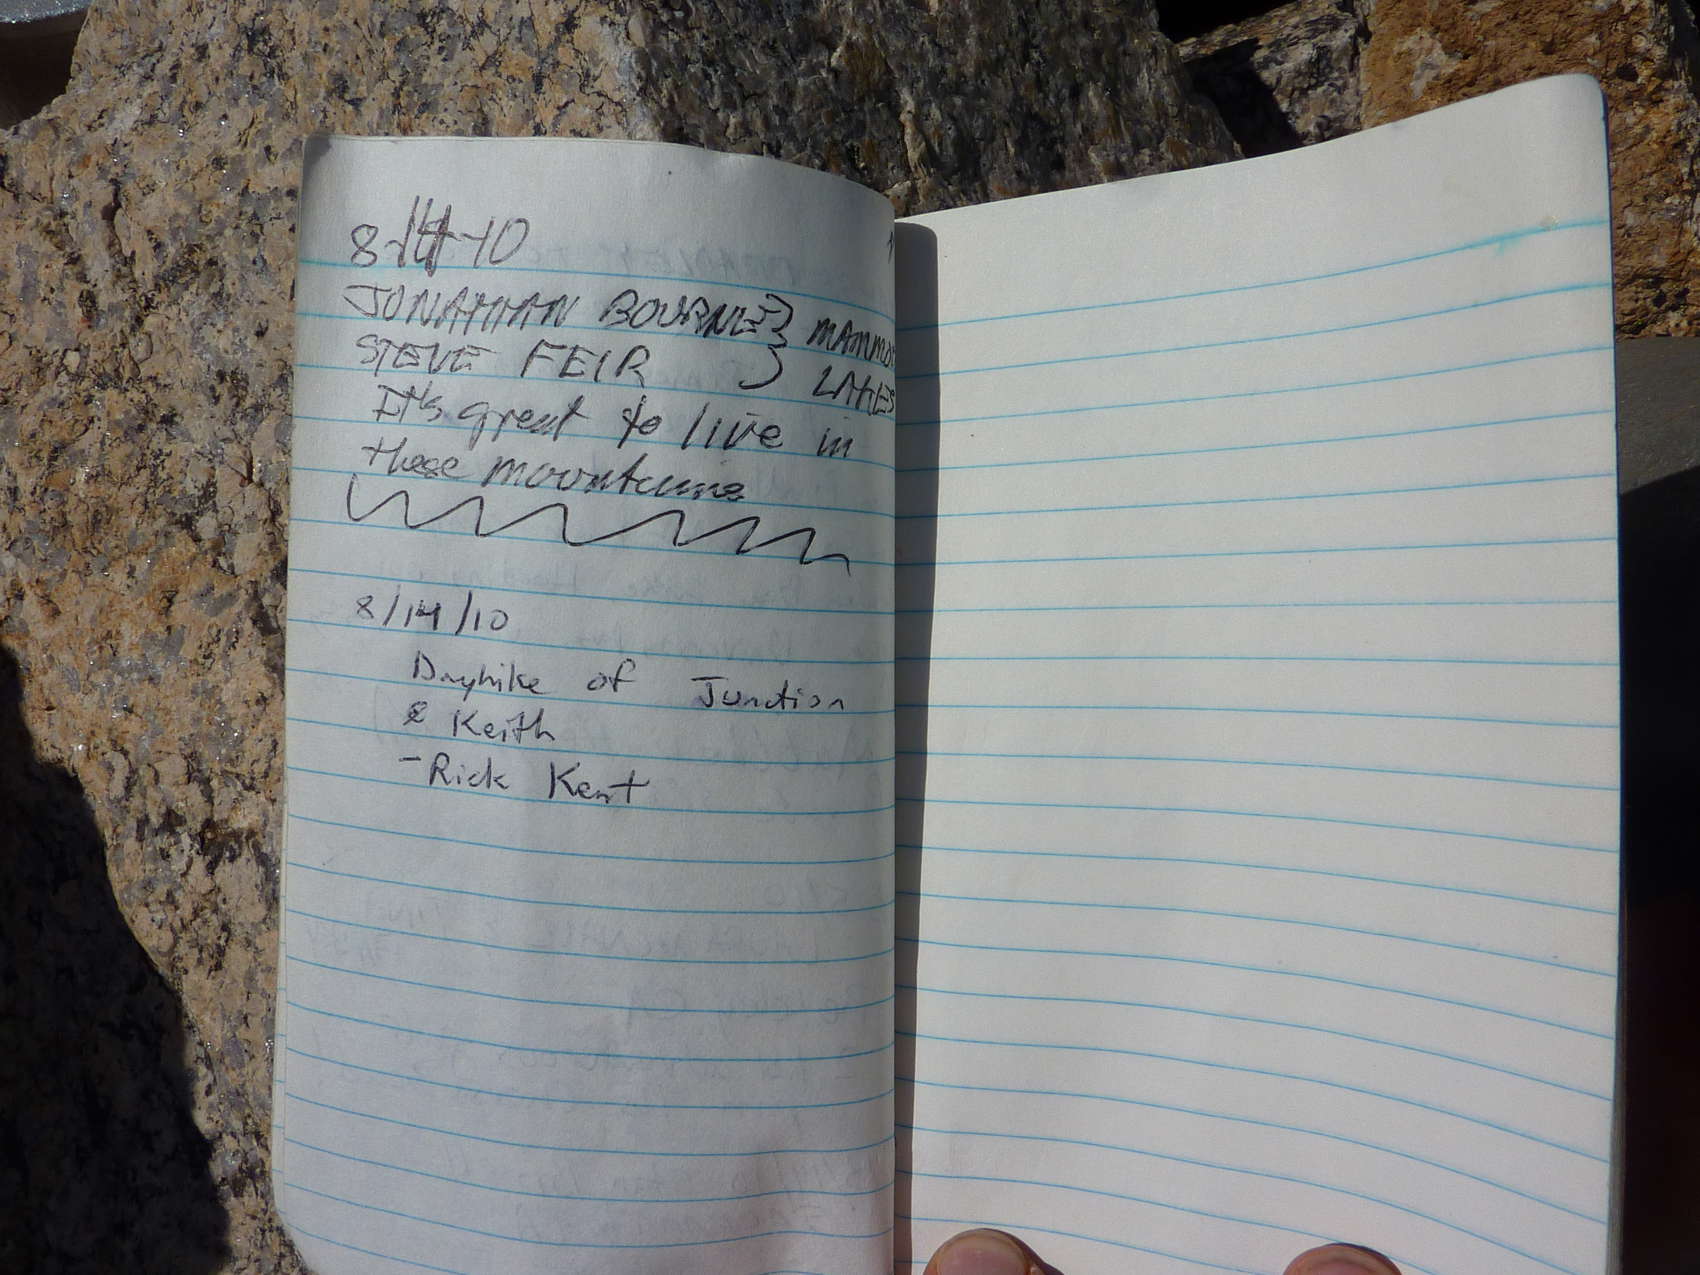 8-14-10
JONATHAN BOURNE } MAMMO
STEVE FEIR } LAKES
It's great to live in
these mountains
8/14/10
Dayhike of Junction
& Keith
- Rick Kent